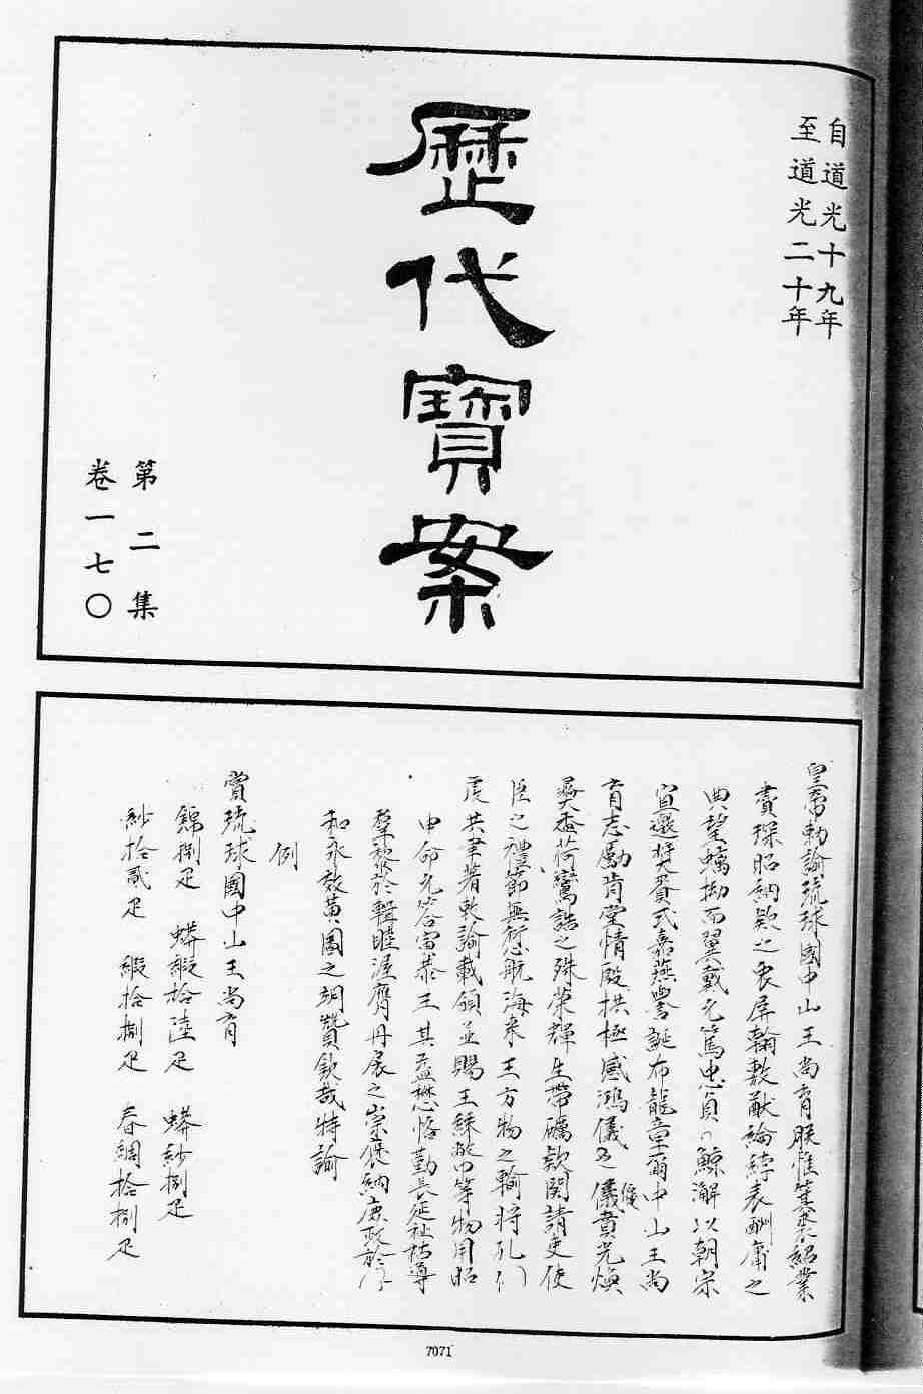 自道光十九年
至道光二十年
歷代寶案
第二集
卷一七〇
皇帝勅諭琉球國中山王尚育朕惟箕裘紹業
賚琛昭納款之衷屏翰敷猷綸綍表酬庸之
典望螭坳而翼戴允篤忠貞 鯨澥以朝宗
宜選奬賚式嘉燕譽誕布龍章爾中山王尚
育志勵肯堂情殷拱極感鴻儀之 儀賁光煥
彛 荷鸞誥之殊榮輝生帶礪款関請吏使
臣之禮節無愆航海來王方物之輸將孔
虔共 著 諭載頒並賜王綵幣等物用昭
申命允答寅恭王其益懋恪勤長延祉祜導
羣黎於輯 渥膺丹扆之崇襃納庶政於
和永效黃圖之翊贊欽哉特諭
例
賞琉球國中山王尚育
錦捌疋 蟒緞拾陸疋 蟒紗捌疋
紗拾貳疋 緞拾捌疋 春綢拾捌疋
7071